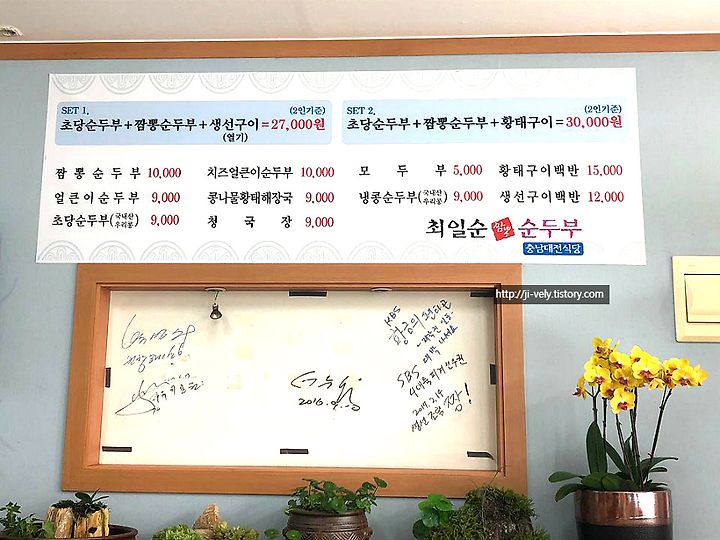 SET 1.
(2인기준)
초당순두부+짬뽕순두부+생선구이=27,000원
(열기)
SET 2.
(2인기준)
초당순두부+짬뽕순두부+황태구이=30,000원
짬뽕순두부 10,000
얼큰이순두부 9,000
초당순두부(국내산 우리콩) 9,000
치즈얼큰이순두부 10,000
콩나물황태해장국 9,000
청국장 9,000
모두부 5,000
냉콩순두부(국내산 우리콩) 9,000
황태구이백반 15,000
생선구이백반 12,000
최일순 순두부
충남대전식당
http://ji-vely.tistory.com
KBS
황금의 펜타곤
대박
SBS
생선 조림 짱!
2016.